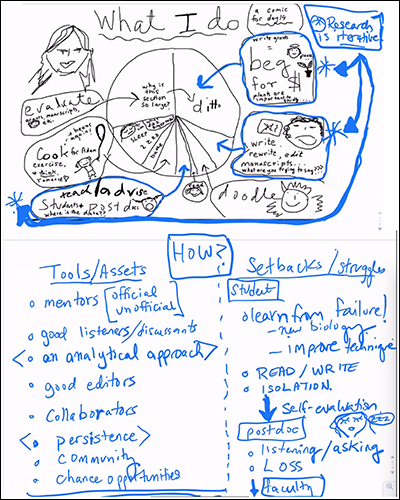 What I do
a comic
for day14
* Research
is iterative
write grants
=
beg
for $
plants are
important
why is
this
section
so large?
ditto
evaluate
manuscripts,
Cook for Adam
exercise,
+ think,
romance
sleep
zzz
write
rewrite, edit
manuscripts...
what are you trying to say???
read/advise
Students + Postdocs
where is the data??
doodle
HOW?
Tools/Assets
o mentors [official
unofficial]
o good listeners/discussants
< o an analytical approach >
o good editors
o collaborators
< o persistence >
o community
o chance opportunities
Setbacks/struggles
Student
o learn from failure!
- new biology
- improve technique
o READ/WRITE
o ISOLATION.
self-evaluation
postdoc
o listening/asking
o LOSS
faculty